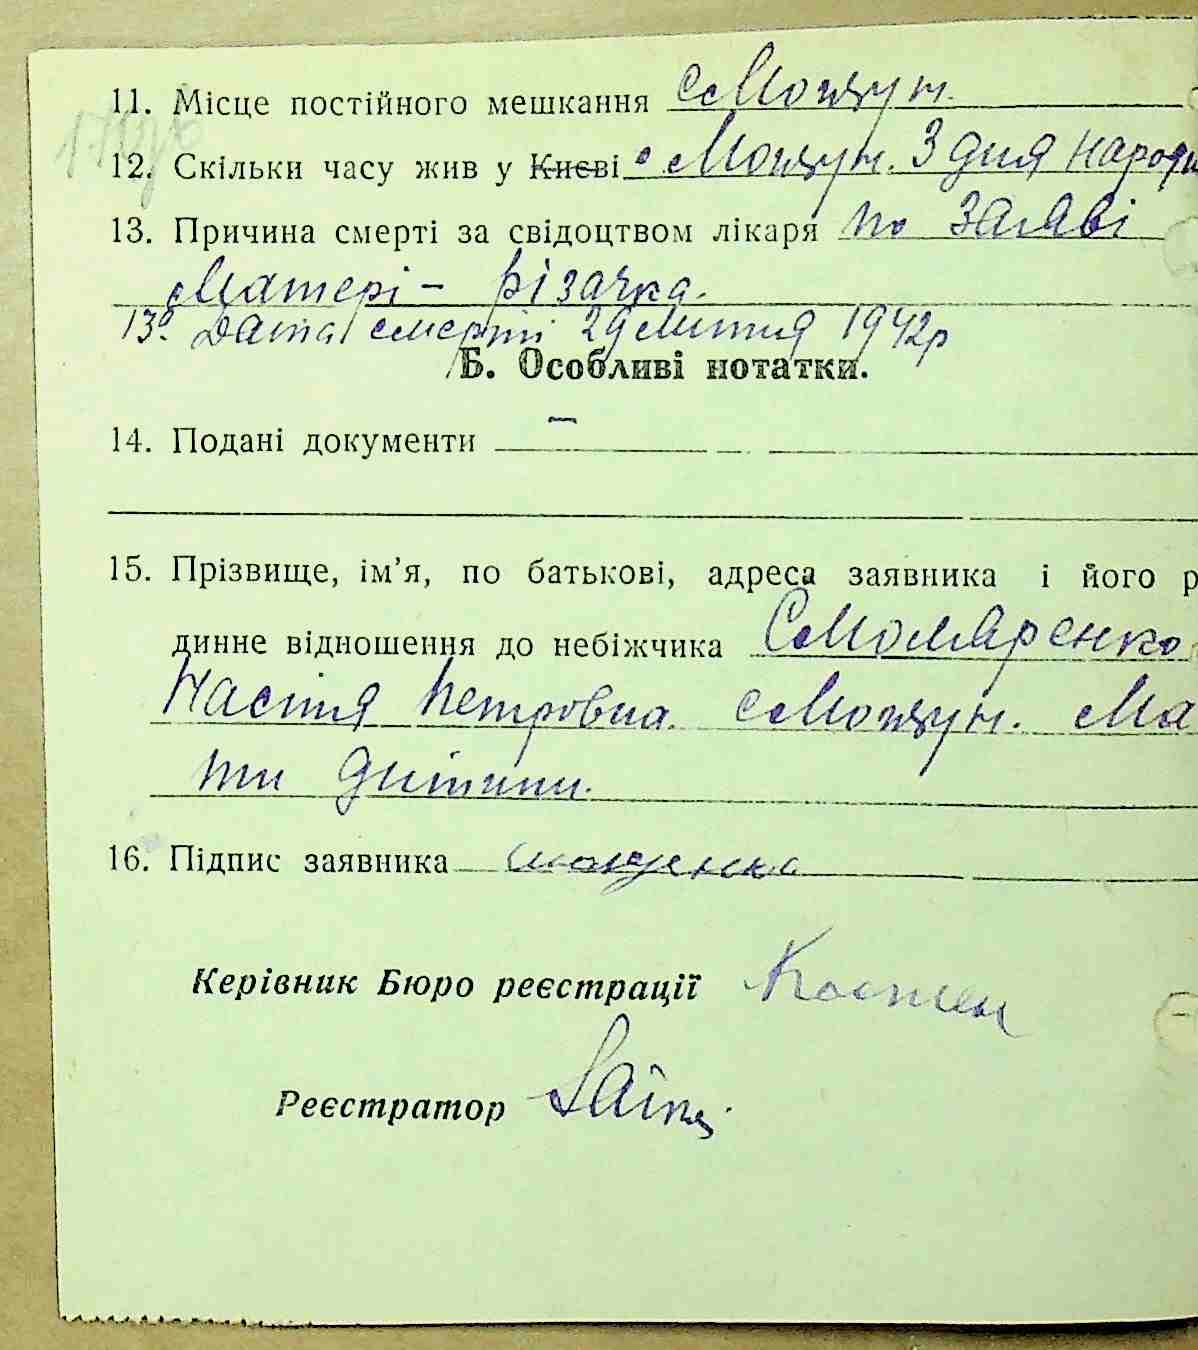 11. Місце постійного мешкання с Мощун.
12. Скільки часу жив у Києві с Мощун. З дня народж
13. Причина смерті за свідоцтвом лікаря по заяві
матері – різачка.
13а. Дата смерті 29 липня 1942р
Б. Особливі нотатки.
14. Подані документи –
15. Прізвище, ім’я, по батькові, адреса заявника і його р
динне відношення до небіжчика Смоляренко
Настя Петровна с Мощун. Ма
ти дитини.
16. Підпис заявника
Керівник Бюро реєстрації
Реєстратор